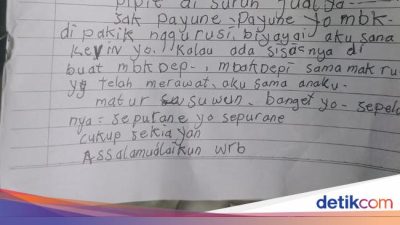 pipit di suruh jual ya
sak payune, payune yo mbk-
di pakik ngurusi, biyayai aku sana
Kevin yo. Kalau ada sisasnya di
buat mbk Dep-, mbak Depi sama mak ru
yg telah merawat, aku sama anaku-
matur suwun, banget yo - sepela
nya = sepurane yo sepurane
cukup sekiayan
Assalamualaikun wrb
detikcom